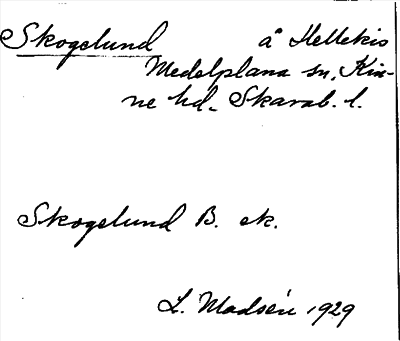 Skogslund å Hellekis
Medelplana sn, Kin-
ne hd. Skarab. l.
Skogslund B. ek.
L. Madsén 1929